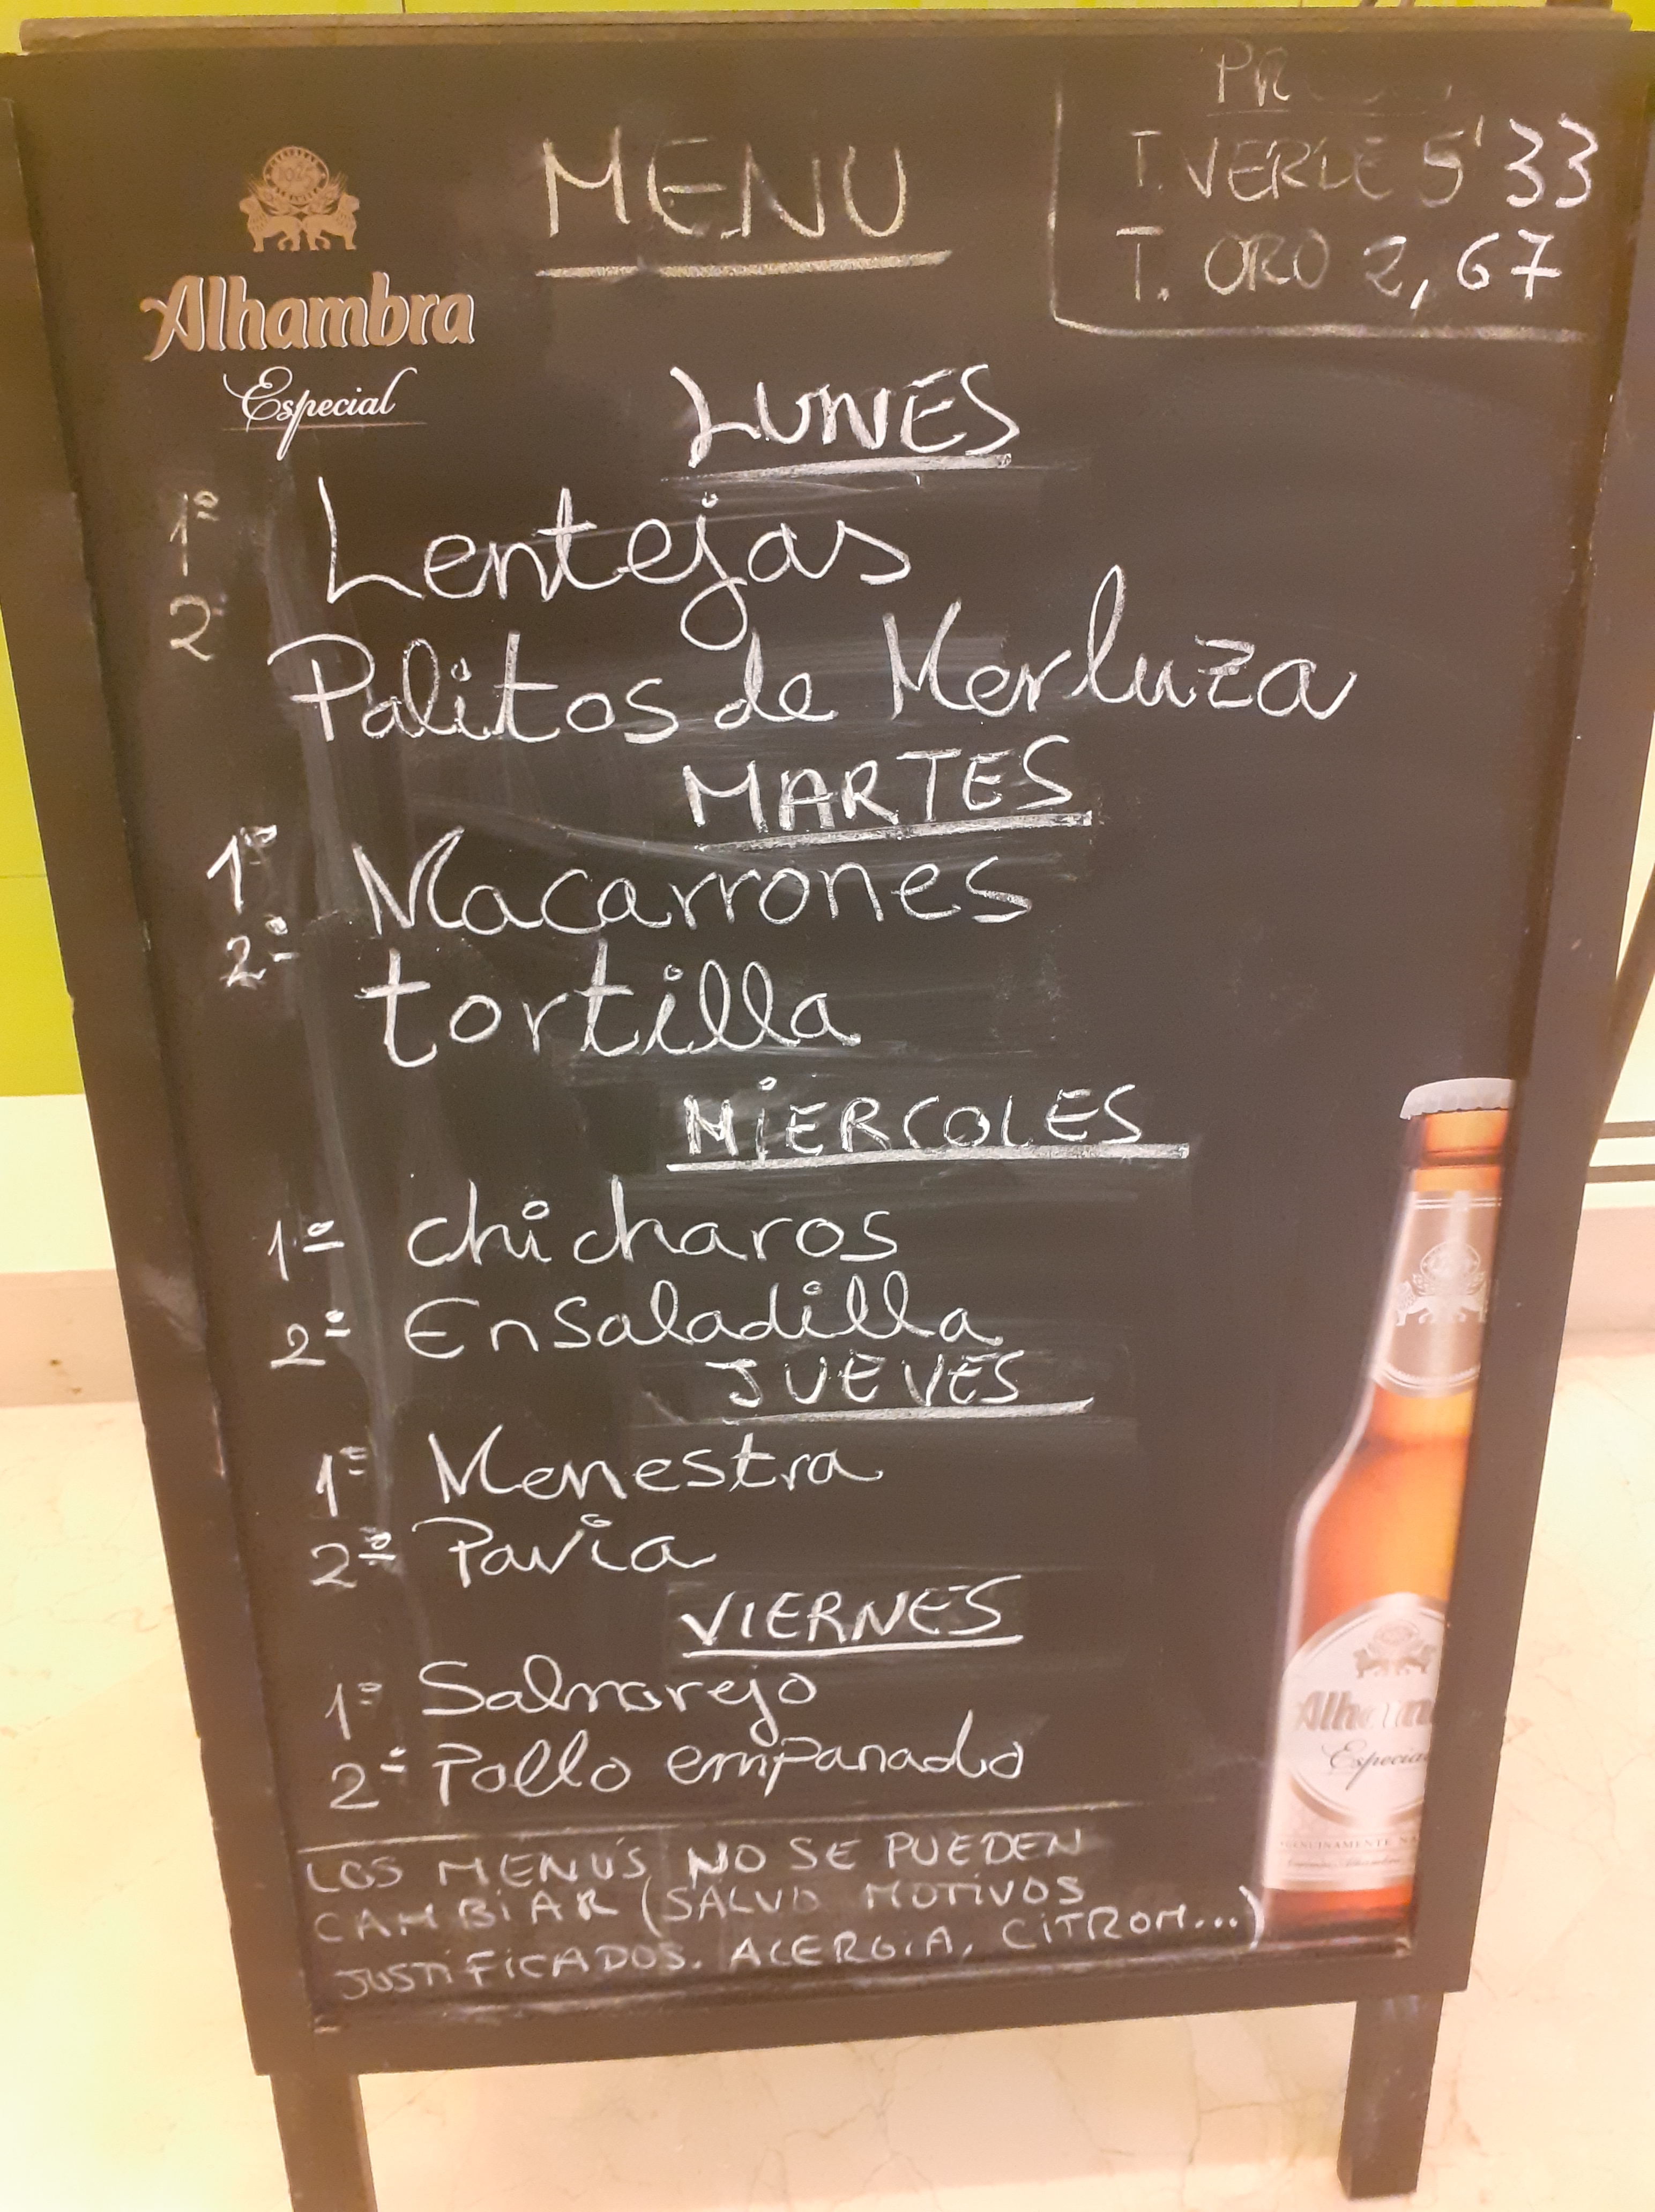 MENU
T. VERDE 5'33
T. ORO 2,67
Alhambra
Especial
LUNES
1º Lentejas
2º Palitos de Merluza
MARTES
1º Macarrones
2º tortilla
MIERCOLES
1º chicharos
2º Ensaladilla
JUEVES
1º Menestra
2º Pavia
VIERNES
1º Salmorejo
2º Pollo empanado
LOS MENÚS NO SE PUEDEN
CAMBIAR (SALVO MOTIVOS
JUSTIFICADOS. ALERGIA, CITROM...)
Especial